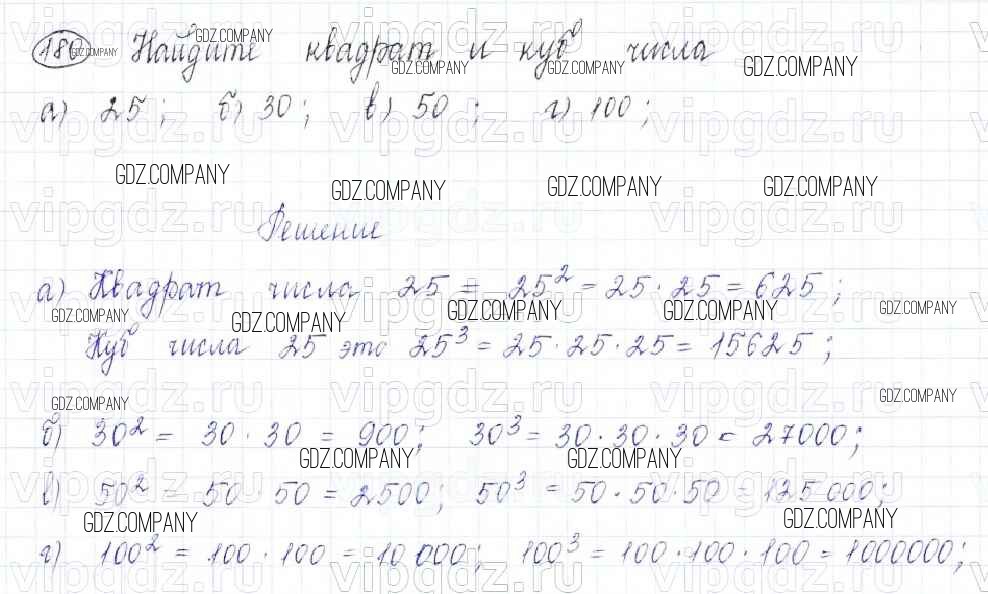 180 Найдите квадрат и куб числа
а) 25; б) 30; в) 50; г) 100;
Решение
а) Квадрат числа 25 = 25² = 25 · 25 = 625;
Куб числа 25 это 25³ = 25 · 25 · 25 = 15625;
б) 30² = 30 · 30 = 900; 30³ = 30 · 30 · 30 = 27000;
в) 50² = 50 · 50 = 2500; 50³ = 50 · 50 · 50 = 125000;
г) 100² = 100 · 100 = 10 000; 100³ = 100 · 100 · 100 = 1000000;
GDZ.COMPANY
vipgdz.ru